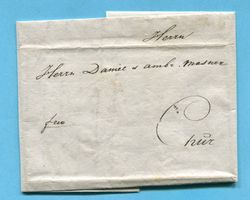 Herrn
Herrn Daniel & ambr. Masner
fco
Chur